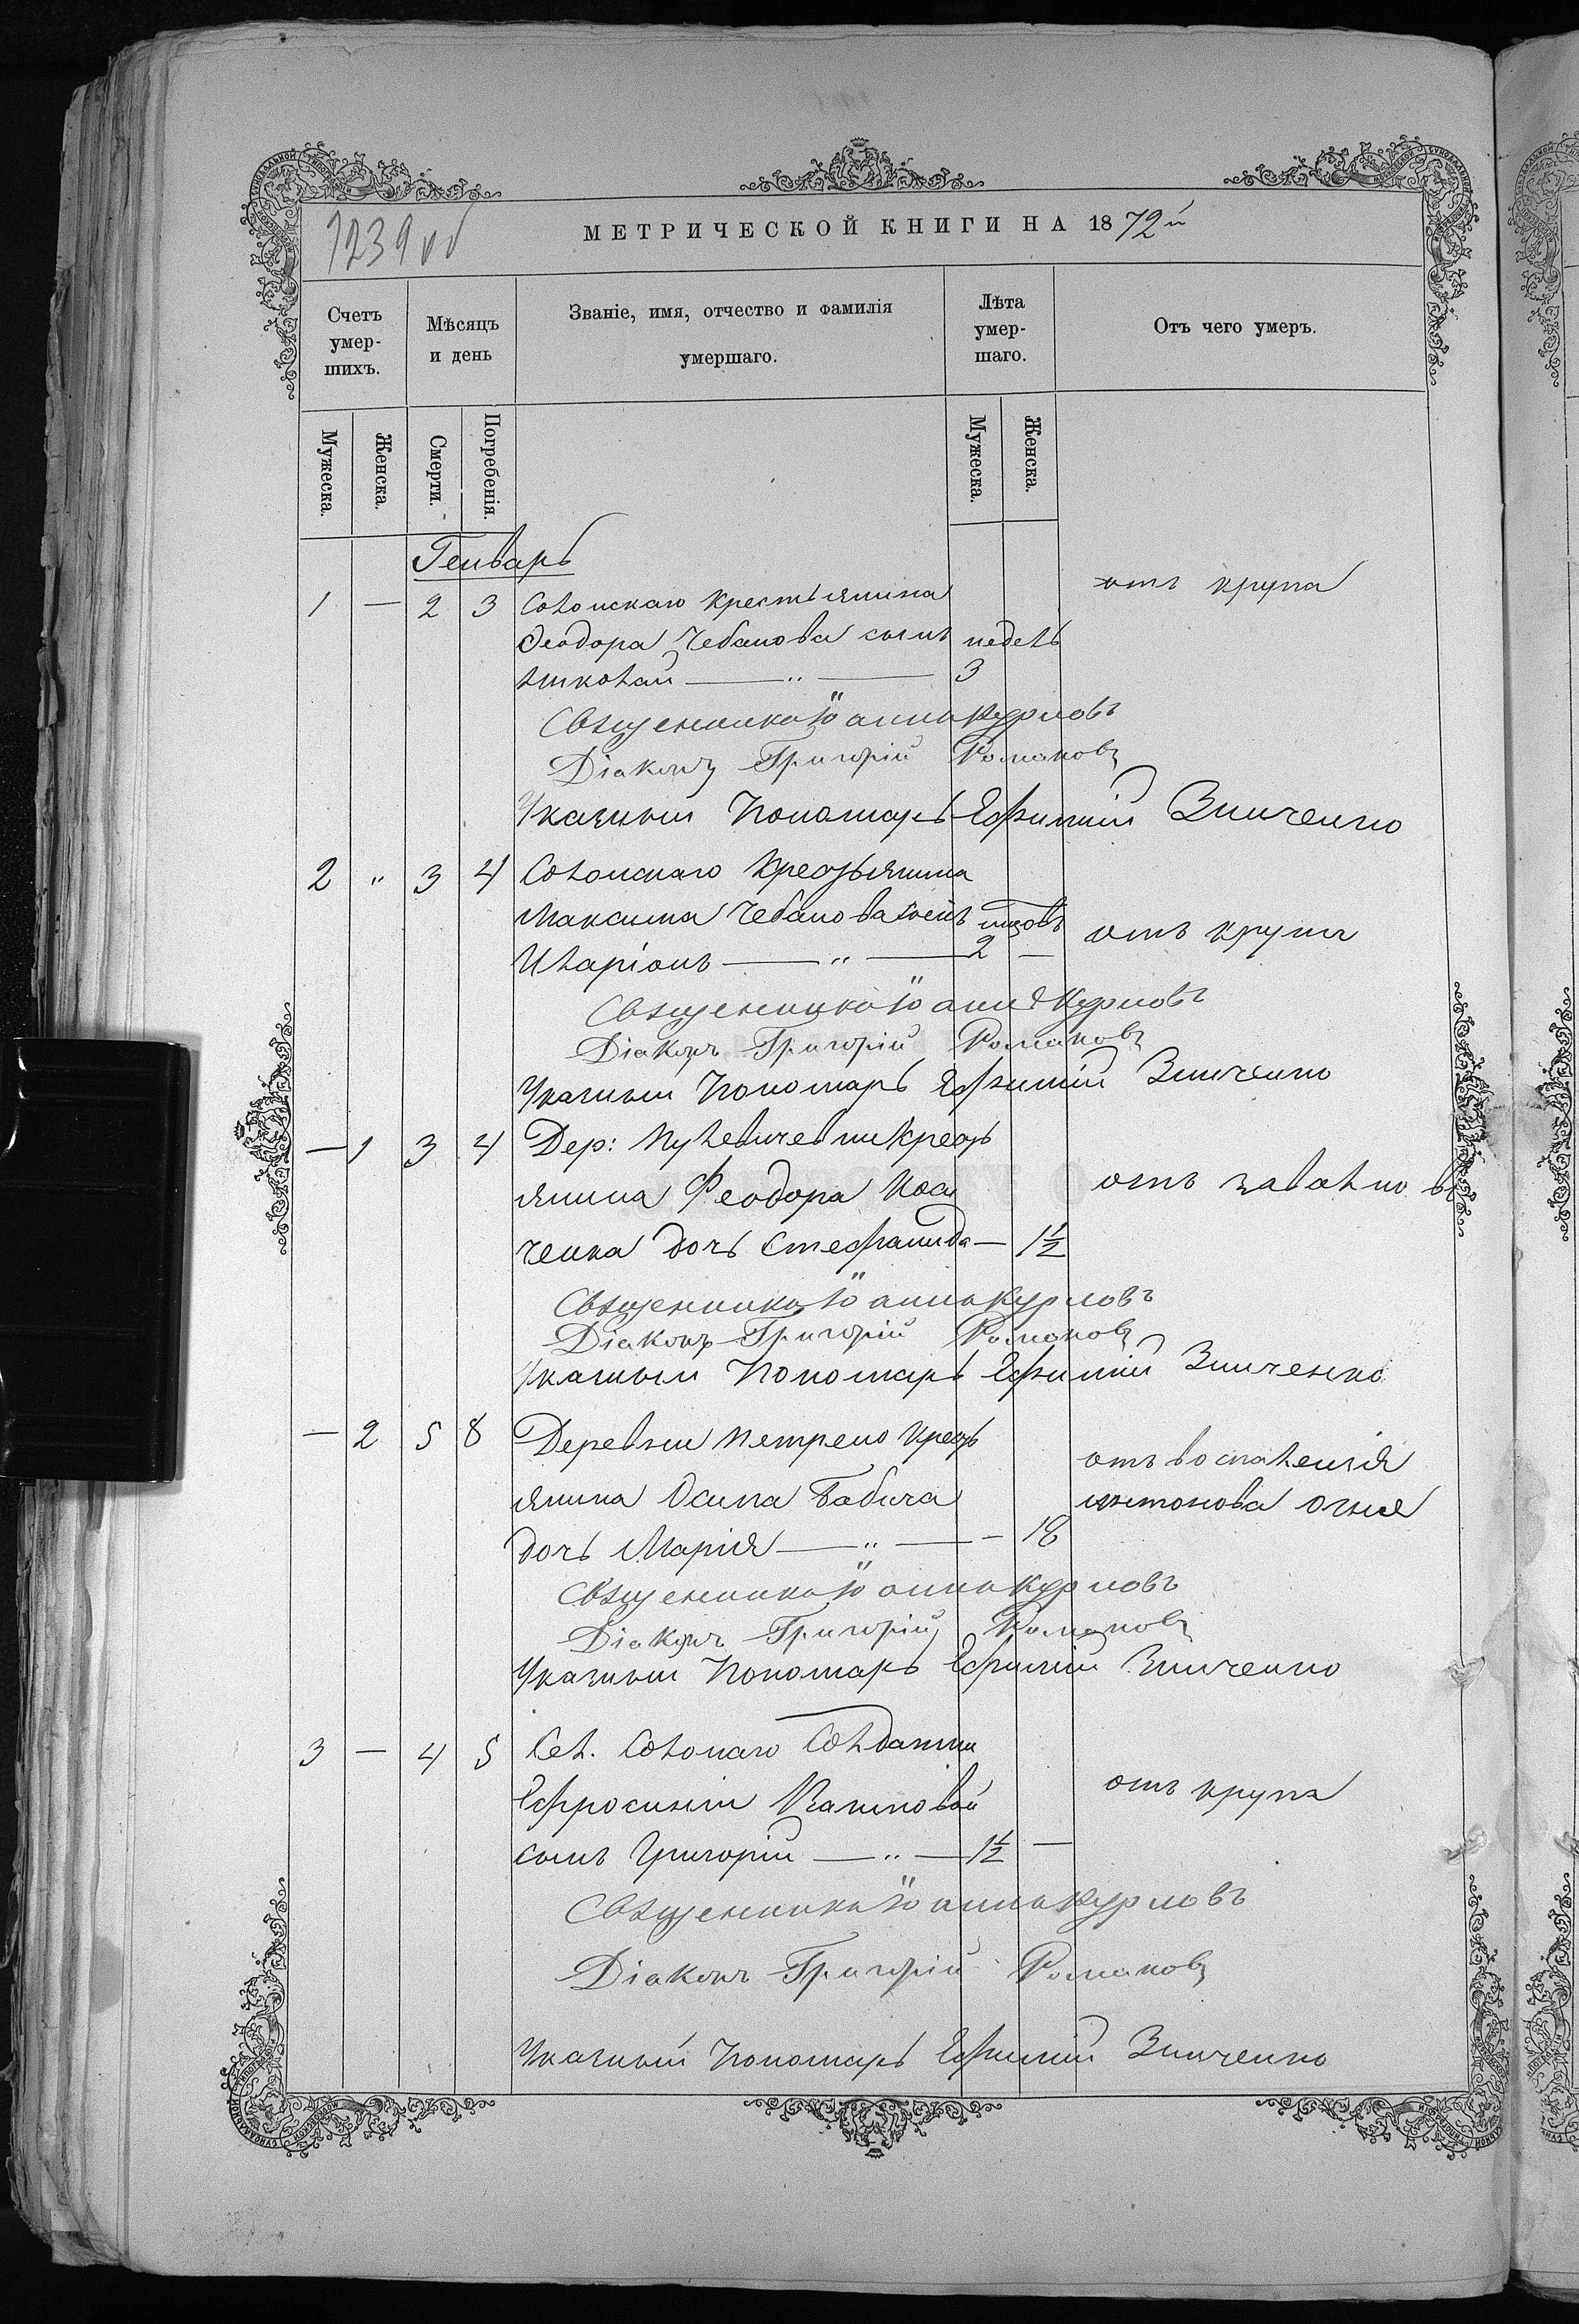 1239 об
МЕТРИЧЕСКОЙ КНИГИ НА 1872й
Счетъ умершихъ.
Мѣсяцъ и день
Званіе, имя, отчество и фамилія умершаго.
Лѣта умершаго.
Отъ чего умеръ.
Мужеска.
Женска.
Смерти.
Погребенія.
Мужеска.
Женска.
Генварь
1 — 2 3 Солонскаго крестьянина отъ крупа
Феодора Чебанова сынъ недель
Николай — " — 3
Священникъ Іоаннъ Курловъ
Діаконъ Григорій Романовъ
Указный Пономарь Ефимій Зинченко
2 " 3 4 Солонскаго Крестьянина
Максима Чебанова сынъ отъ крупа
Иларіонъ — " — 2 —
Священникъ Іоаннъ Курловъ
Діаконъ Григорій Романовъ
Указный Пономарь Ефимій Зинченко
— 1 3 4 Дер: Крест
янина Феодора отъ
ченка дочь Стефанида — 1½
Священникъ Іоаннъ Курловъ
Діаконъ Григорій Романовъ
Указный Пономарь Ефимій Зинченко
— 2 5 8 Деревни Крест отъ воспаленія
янина Осипа Бабича антонова огня
дочь Марія — " — — 18
Священникъ Іоаннъ Курловъ
Діаконъ Григорій Романовъ
Указный Пономарь Ефимій Зинченко
3 — 4 5 Сел. Солонаго Солдатки
Ефросиніи отъ крупа
сынъ Григорій — " — 1½ —
Священникъ Іоаннъ Курловъ
Діаконъ Григорій Романовъ
Указный Пономарь Ефимій Зинченко